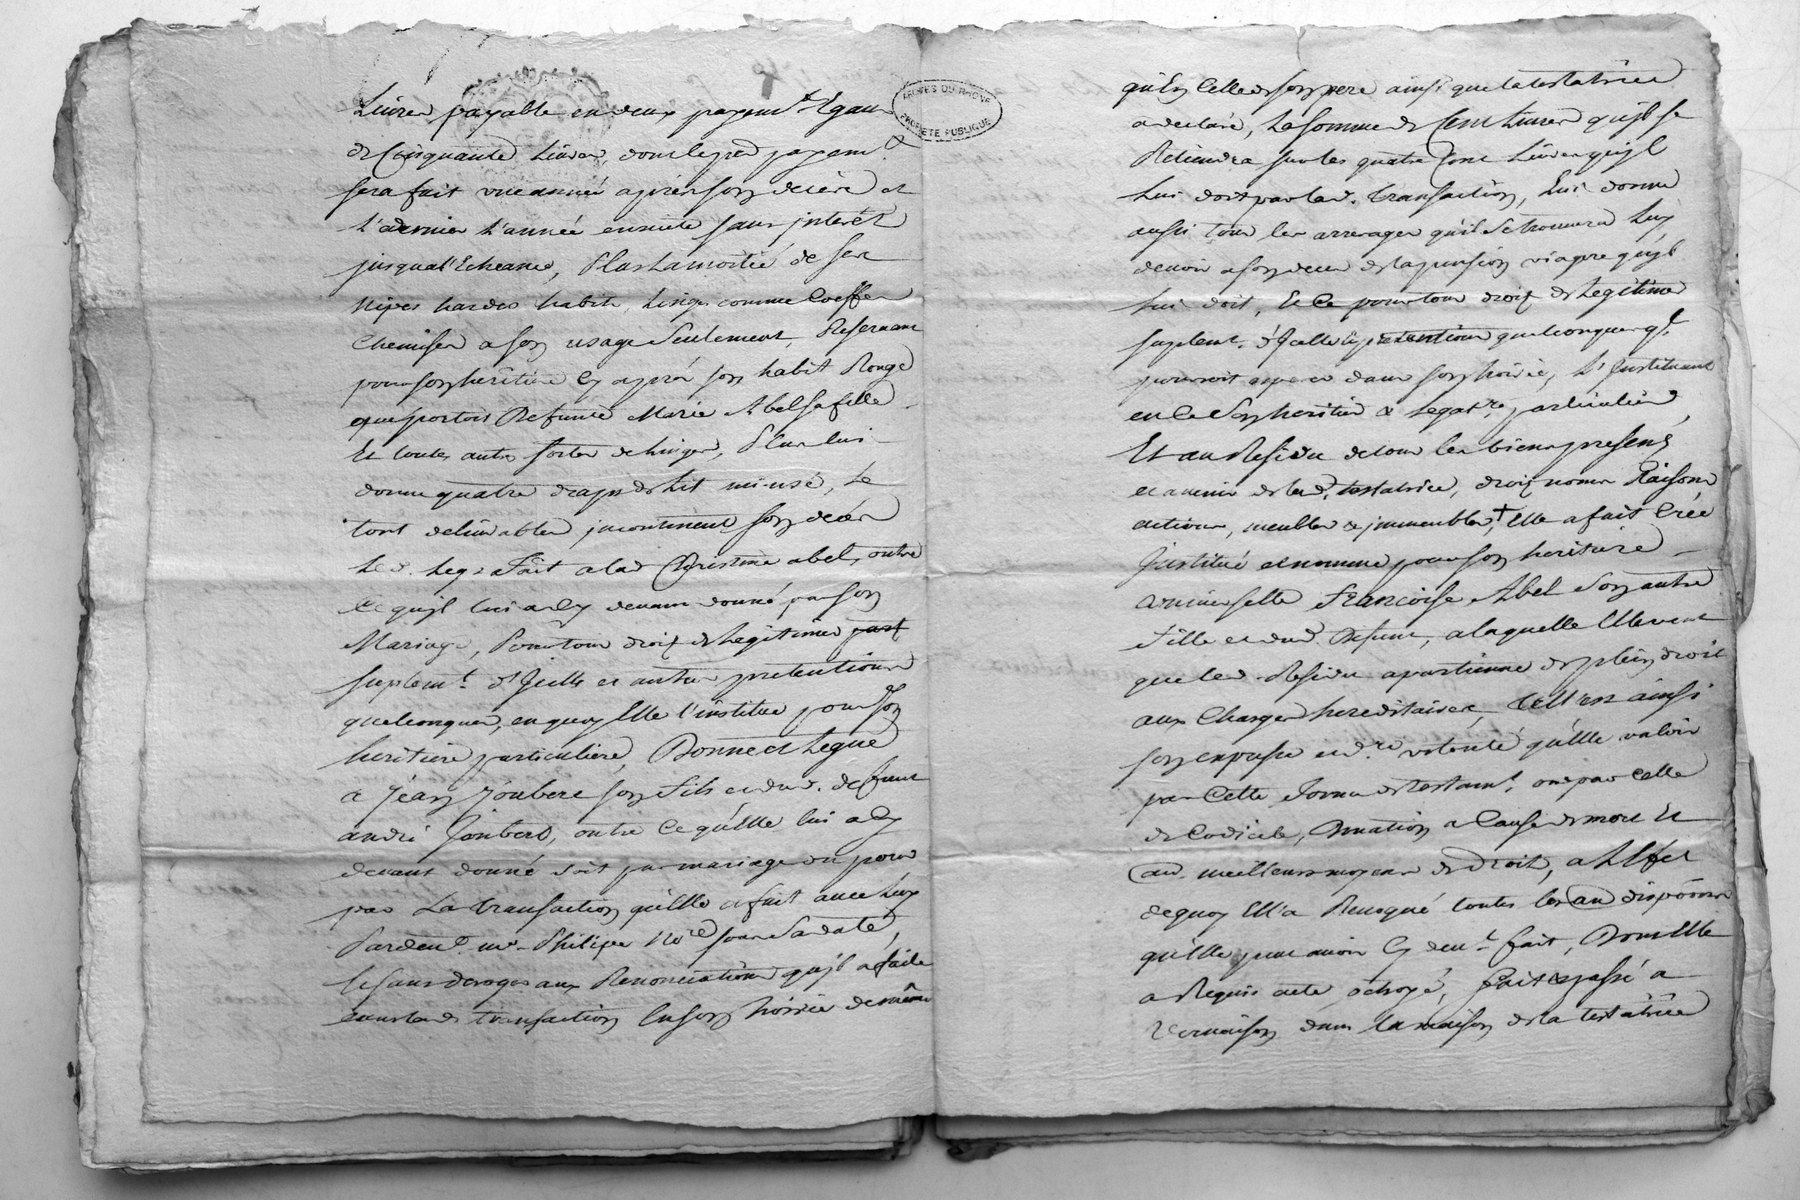 Livres payable en deux payemt Egaux
de Cinquante Livres, dont le pr payemt
sera fait une année après son décès et
L'dernier L'année ensuite sans intérêt
jusqu'a l'Echeance, Plus la moitié de ses
nipes hardes habits, Linges comme Coeffes
Chemises a son usage Seulement, Reservant
pour son heritière cy après son habit Rouge
que portoit Defunte Marie Abel sa fille
Et toutes autres sortes de linges, Plus lui
donne quatre draps de Lit mi-usé, Le
tout delivrables incontinent son décès
Led. Legs Fait a lad Christine abel, outre
Ce quil lui a Cy devant donné par son
Mariage, Pour tour droix de Legitime part
suplemt d'Jcelle et autres pretentions
quelconques, en quoy Elle l'institue pour son
heritiere particuliere, Donne et Legue
a Jean Joubert son fils et dud. defunt
andré Joubert, outre Ce qu'Elle lui a Cy
devant donné soit par mariage ou pour
par La transaction qu'Elle a fait avec Luy
Pardevt me Philipe Nore sous Sa date,
le sans deroger aux Renonciations quil a faite
dans lad transaction En son hoirie de même
ARCHIVES DU RHONE
PROPRIETE PUBLIQUE
qu'En Celle de son pere ainsi que la testatrice
a declaré, La somme de Cent Livres quil se
Retiendra sur les quatre Cent Livres quil
Lui doit par lad. transaction, Lui donne
aussi tous les arrerages qu'il Se trouvera Luy
devoir a son deces de la pension viagre quil
lui doit, Et Ce pour tour droix de Legitime
suplemt d'Jcelle pretentions quelconques ql
pourroit esperer dans son hoirie, L'Jnstituant
en Ce Son heritier & Legatre particulier,
Et au Residu de tous les biens presens
et avenir de lad. testatrice, droix noms Raisons
actions, meubles & jmmeubles, + Elle a fait Créé
Jnstitué et nommé pour son heritiere
universelle Françoise Abel Son autre
Fille et dud. Defunt, a laquelle Elle veut
que led. Residu apartienne de plein droit
aux Charges hereditaires, telle est ainsi
son expresse et dre volonté qu'Elle valoir
par Cette Forme de testamt ou par celle
de Codicile, Donation a Cause de mort Et
aud. meilleurs moyens de droit, a L'Effet
de quoy Elle a Revoqué toutes les au dispoõns
qu'Elle peut avoir Cy devt fait, Dont Elle
a Requis acte octroyé, Fait & passé a
Vernaison dans la maison de la testatrice